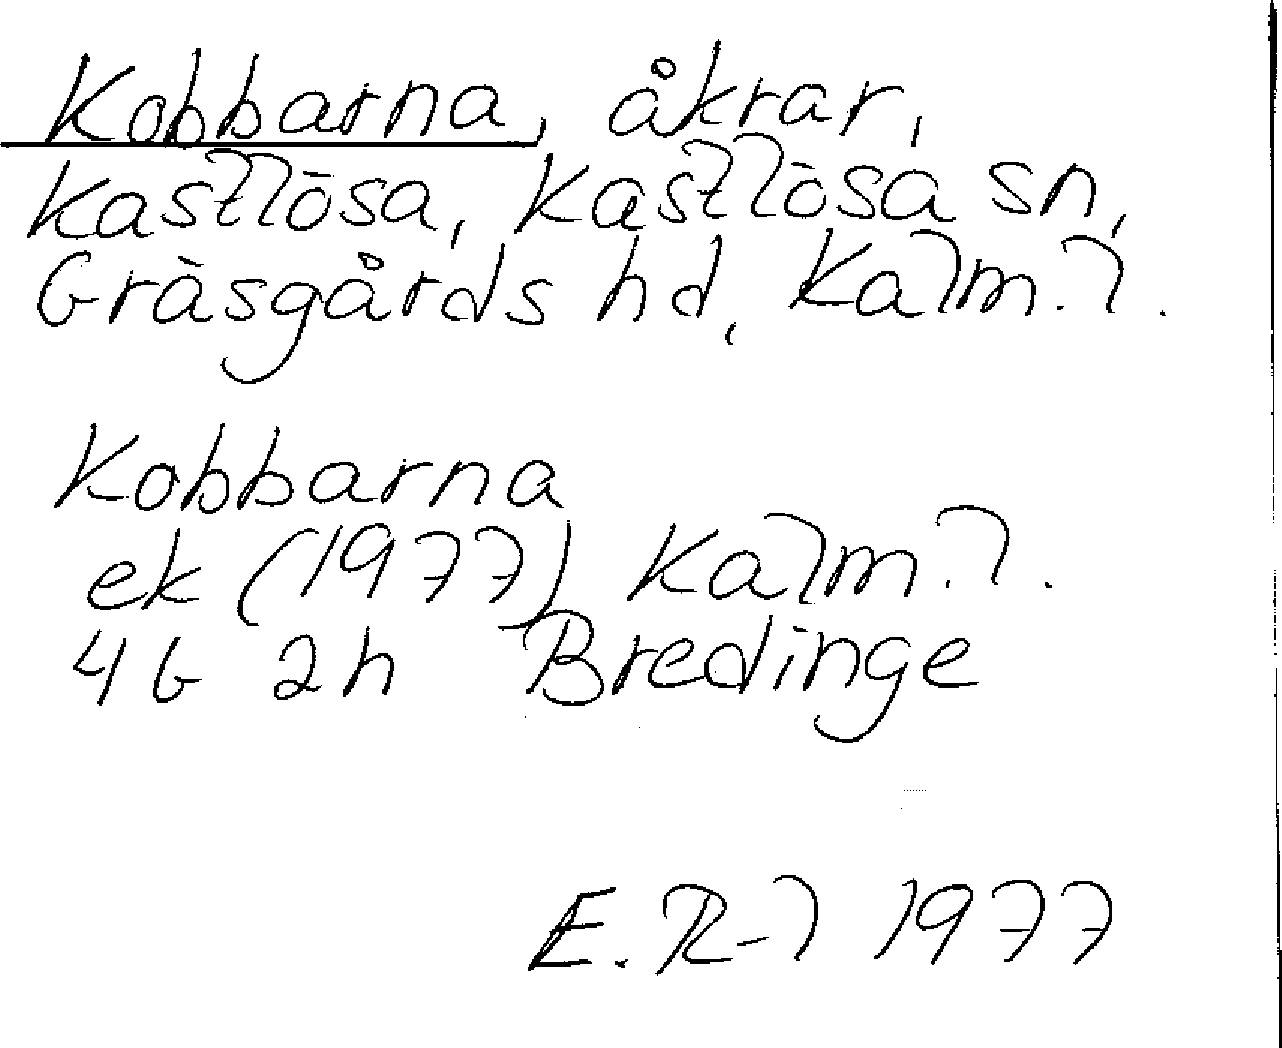 Kobbarna, åkrar,
Kastlösa, Kastlösa sn,
Gräsgårds hd, Kalm. l.
Kobbarna
ek (1977) Kalm. l.
4G 2h Bredinge
E. R-l 1977